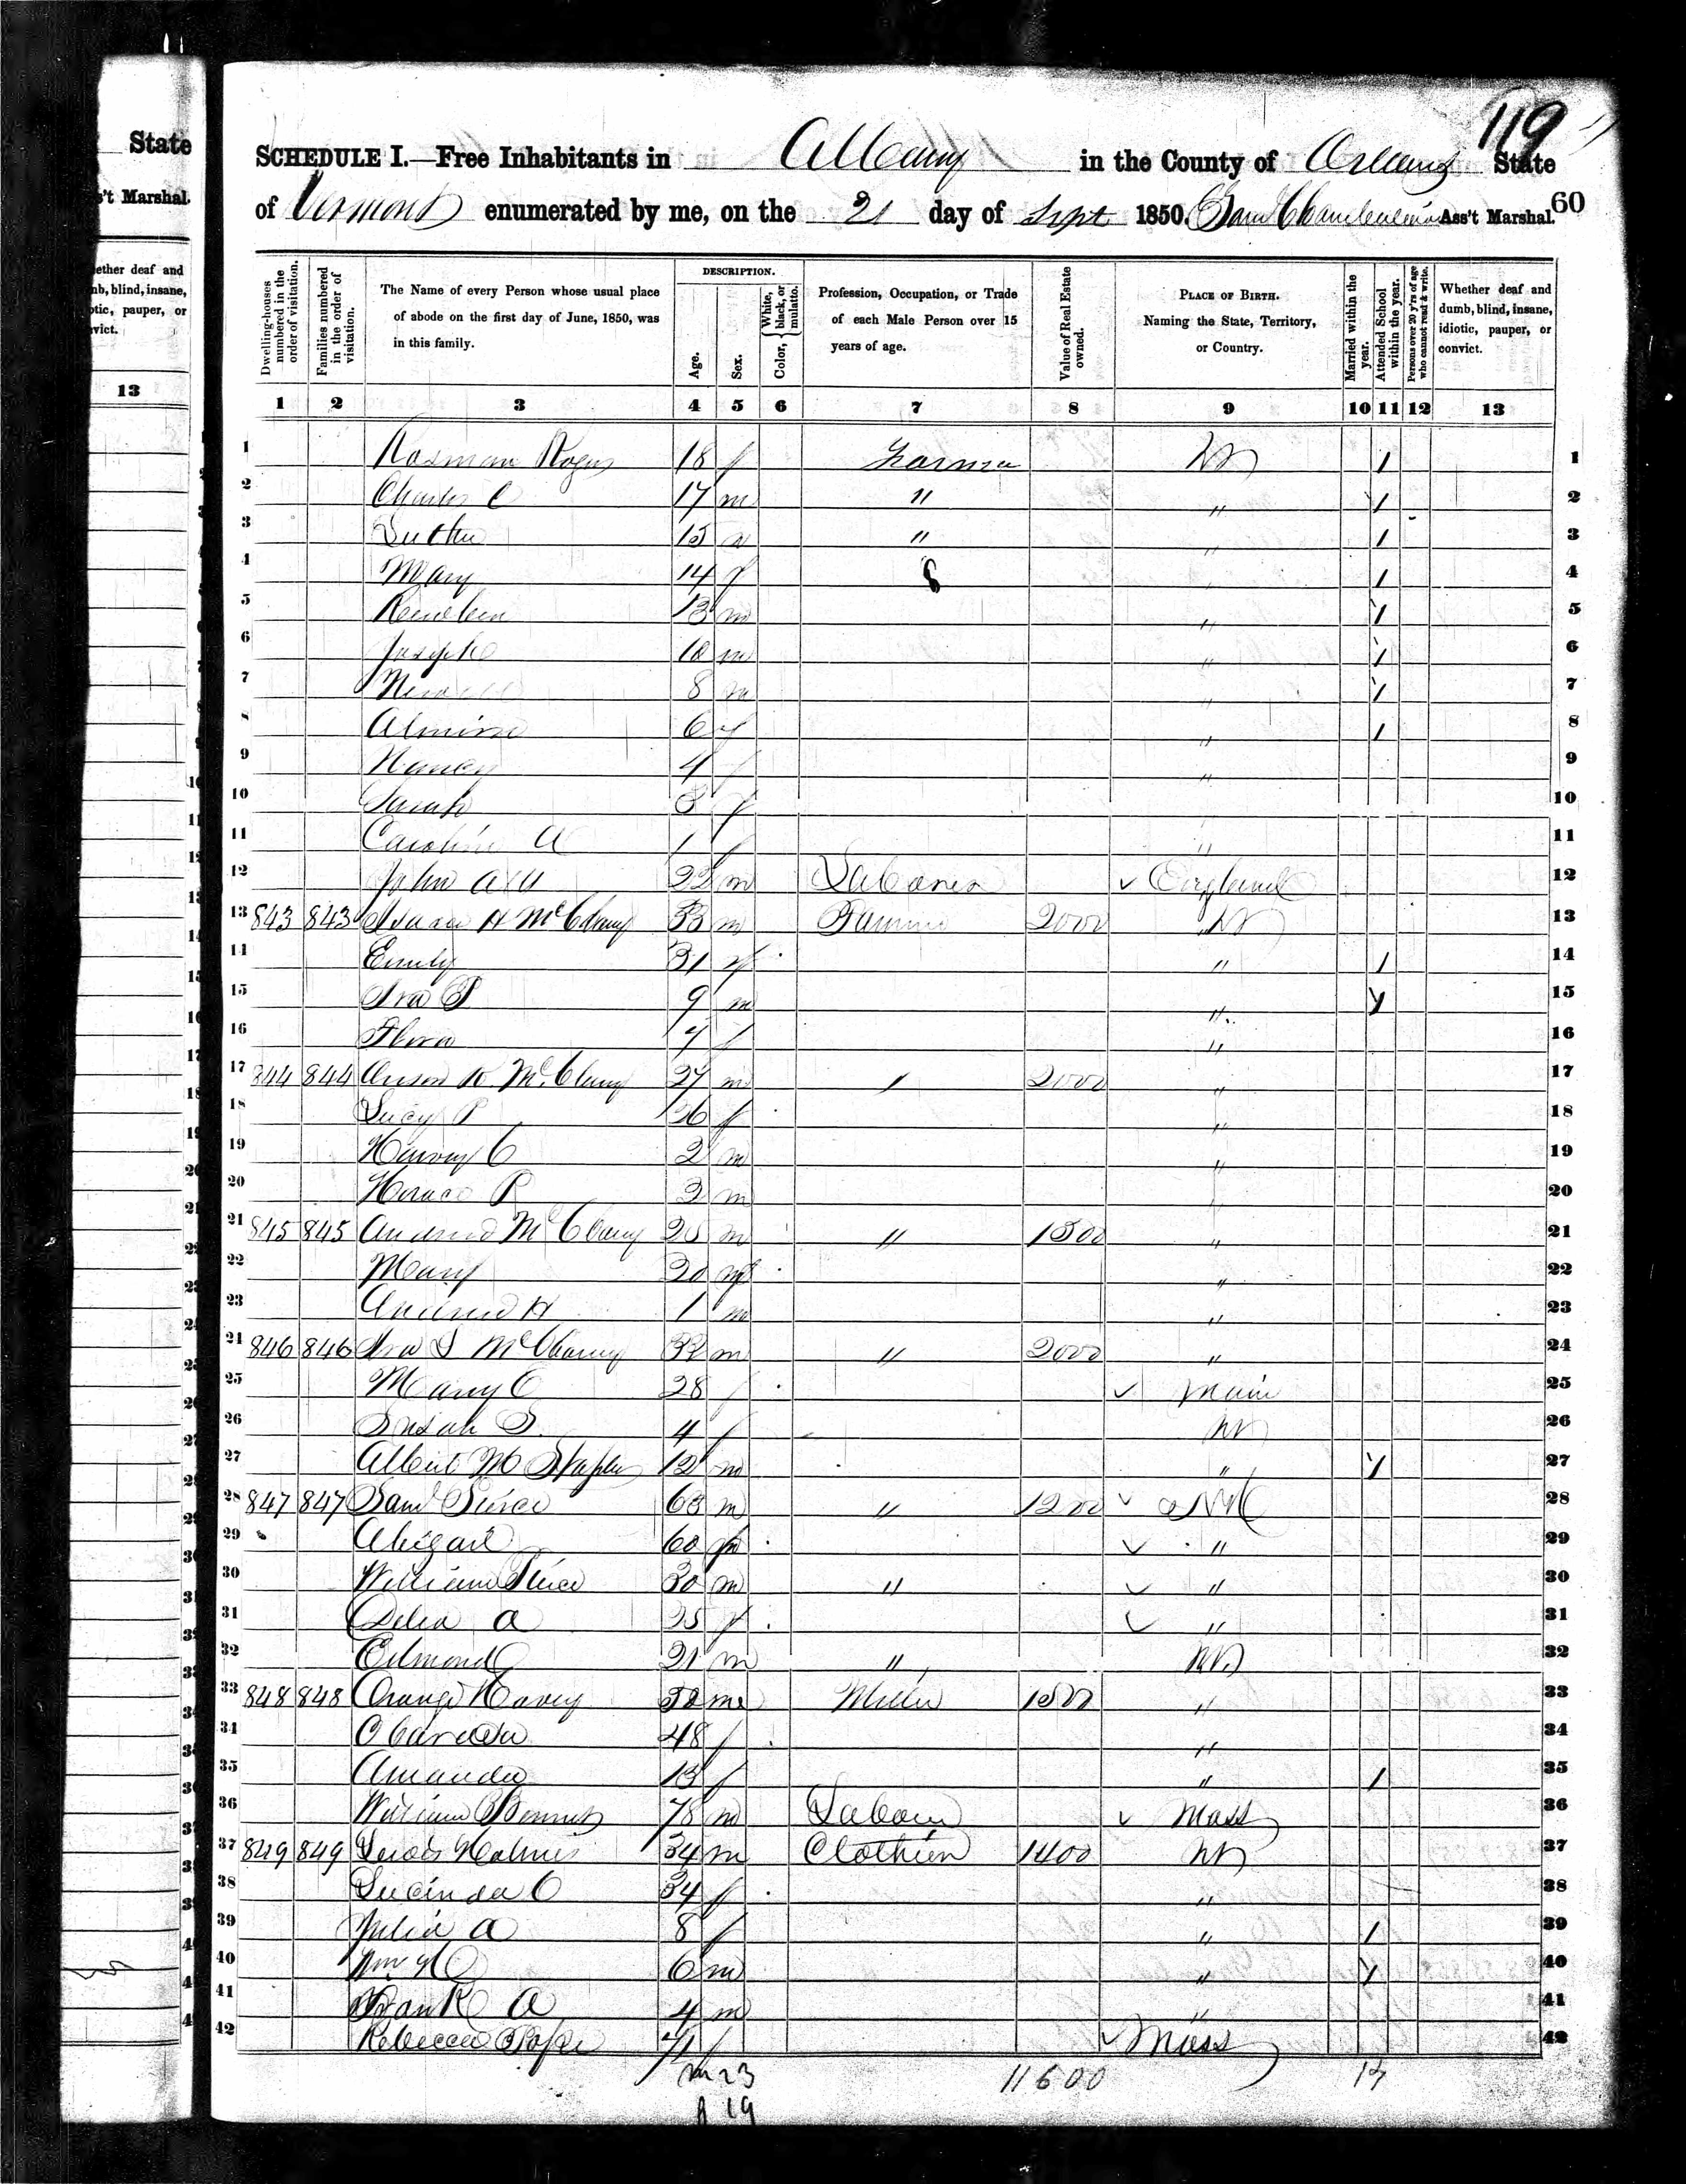 State
's't Marshal.
ether deaf and
nb, blind, insane,
otic, pauper, or
vict.
13
119
SCHEDULE I.—Free Inhabitants in Albany in the County of Orleans State
of Vermont enumerated by me, on the 21 day of Sept 1850. Ass't Marshal.
60
Dwelling-houses numbered in the order of visitation.
Families numbered in the order of visitation.
The Name of every Person whose usual place of abode on the first day of June, 1850, was in this family.
DESCRIPTION.
Age.
Sex.
Color, White, black, or mulatto.
Profession, Occupation, or Trade of each Male Person over 15 years of age.
Value of Real Estate owned.
PLACE OF BIRTH. Naming the State, Territory, or Country.
Married within the year.
Attended School within the year.
Persons over 20 y'rs of age who cannot read & write.
Whether deaf and dumb, blind, insane, idiotic, pauper, or convict.
1 2 3 4 5 6 7 8 9 10 11 12 13
1 18 f Farmer Vt 1 1
2 Charles C 17 m " " 1 2
3 Luther 15 m " " 1 3
4 Mary 14 f " 1 4
5 Reuben 13 m " 1 5
6 Joseph 10 m " 1 6
7 8 m " 1 7
8 Almira 6 f " 1 8
9 Nancy 4 f " 9
10 Sarah 3 f 10
11 Caroline A 1 f " 11
12 John 22 m Laborer England 12
13 843 843 H McClary 33 m Farmer 2000 Vt 13
14 Emily 31 f " 1 14
15 Ira P 9 m " 1 15
16 Flora f " 16
17 844 844 Anson K McClary 27 m 2000 " 17
18 Lucy P 26 f " 18
19 Harvey C 2 m " 19
20 Horace P 2 m 20
21 845 845 Andrew McClary m " 1500 " 21
22 Mary 20 f " 22
23 Andrew H 1 m " 23
24 846 846 Ira S McClary 33 m " 2000 " 24
25 Mary C 28 f Main 25
26 Susan S. 4 f Vt 26
27 Albert M Staples 12 m " 1 27
28 847 847 Saml Pierce 63 m " 1200 NH 28
29 Abigail 60 f " 29
30 William Pierce 30 m " " 30
31 Delia A 25 f " 31
32 Edmond 21 m " Vt 32
33 848 848 Orange Hovey 52 m Miller 1500 " 33
34 48 f " 34
35 Amanda 13 f " 1 35
36 William 78 m Labour Mass 36
37 849 849 Holmes 34 m Clothier 1400 Vt 37
38 Lucinda C 34 f " 38
39 Julia A 8 f " 1 39
40 Wm H 6 m " 1 40
41 Frank A 4 m " 41
42 Rebecca Pope 71 f Mass 42
m 23 11600 17
f 19